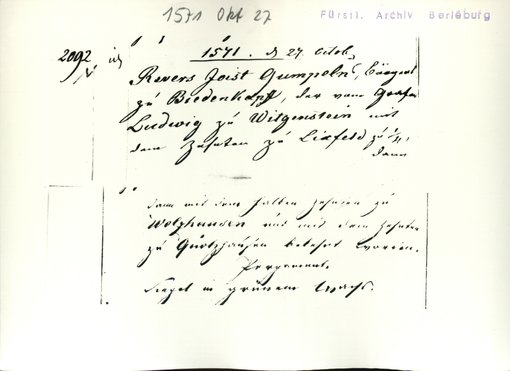 1571 Okt 27
Fürstl. Archiv Berleburg
2092
1571. d 27. Octob.
Revers Joist Gumpeln, Bürgers
zu Biedenkapf, der vom Grafen
Ludwig zu Witgenstein mit
dem Zehnten zu Lixfeld zu 1/2,
dann
dann mit dem halben Zehnten zu
Wolzhausen und mit dem Zehnten
zu Quotzhausen belehnt worden.
Pergament.
Siegel in grünem Wachs.